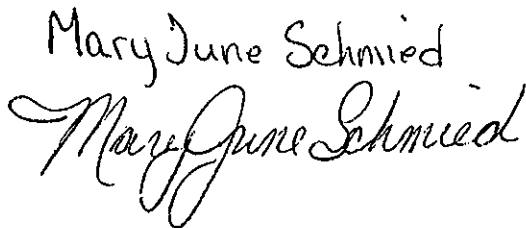 Mary June Schmied
Mary June Schmied